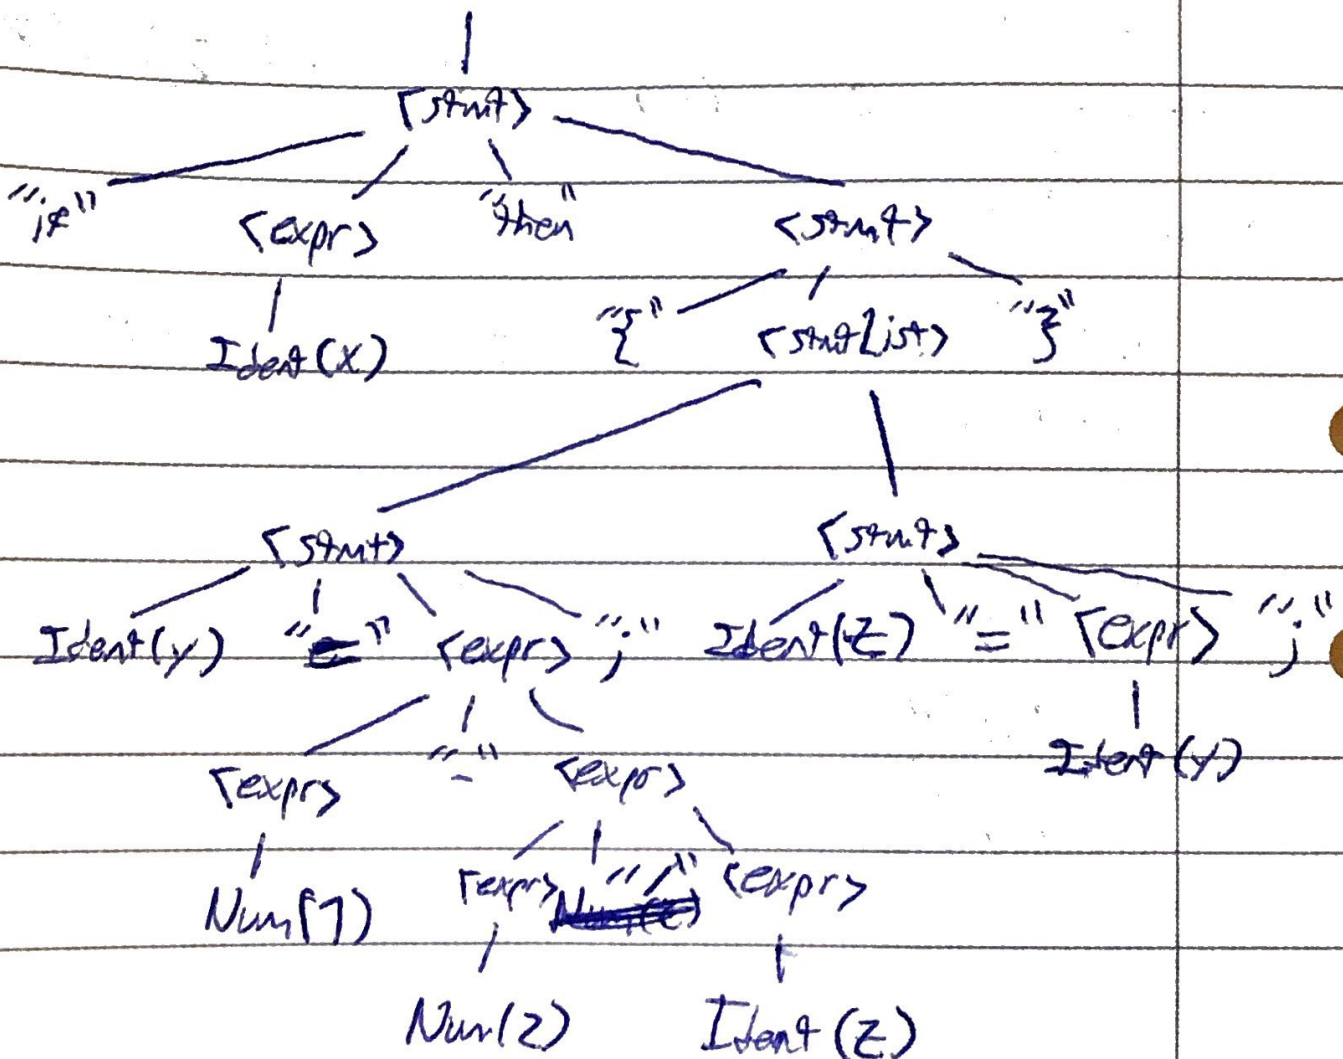 <stmt>
"if" <expr> "then" <stmt>
Ident(x) "{" <stmtList> "}"
<stmt> <stmt>
Ident(y) "=" <expr> ";" Ident(z) "=" <expr> ";"
<expr> "-" <expr> Ident(y)
Num(7) <expr> "/" <expr>
Num(2) Ident(z)